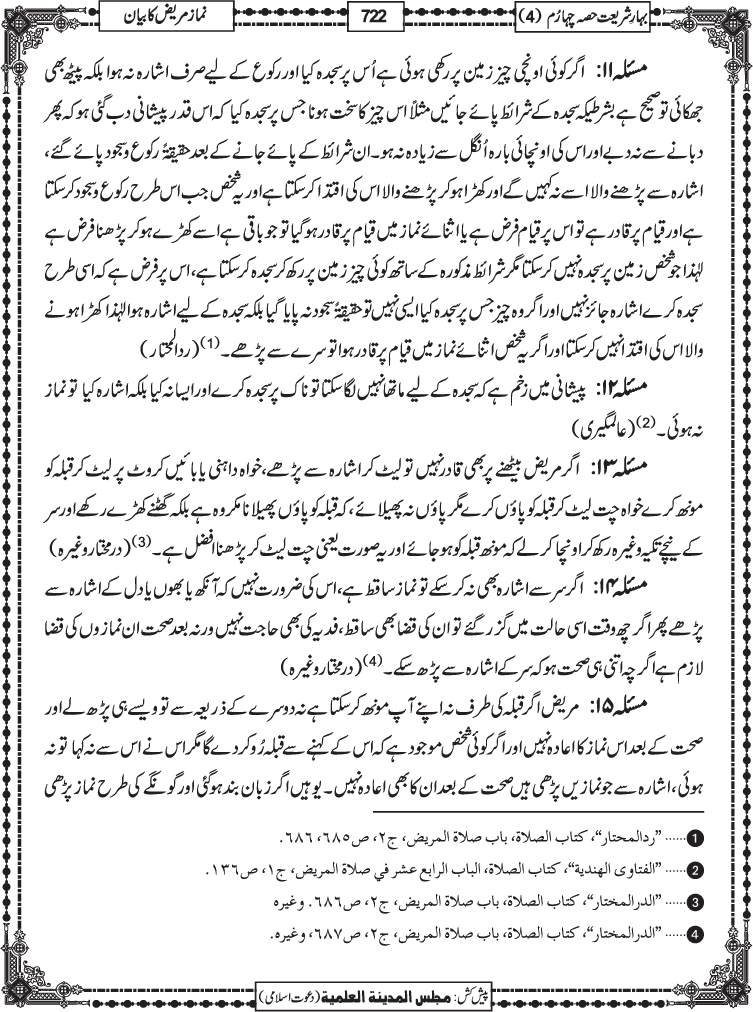 بہارِ شریعت حصہ چہارم (4)
722
نماز مریض کا بیان
مسئلہ ۱۱: اگر کوئی اونچی چیز زمین پر رکھی ہوئی ہے اُس پر سجدہ کیا اور رکوع کے لیے صرف اشارہ نہ ہوا بلکہ پیٹھ بھی
جھکائی تو صحیح ہے بشرطیکہ سجدہ کے شرائط پائے جائیں مثلاً اس چیز کا سخت ہونا جس پر سجدہ کیا کہ اس قدر پیشانی دب گئی ہو کہ پھر
دبانے سے نہ دبے اور اس کی اونچائی بارہ اُنگل سے زیادہ نہ ہو۔ ان شرائط کے پائے جانے کے بعد حقیقۃً رکوع و سجود پائے گئے،
اشارہ سے پڑھنے والا اسے نہ کہیں گے اور کھڑا ہو کر پڑھنے والا اس کی اقتدا کر سکتا ہے اور یہ شخص جب اس طرح رکوع و سجود کر سکتا
ہے اور قیام پر قادر ہے تو اس پر قیام فرض ہے یا اثنائے نماز میں قیام پر قادر ہو گیا تو جو باقی ہے اسے کھڑے ہو کر پڑھنا فرض ہے
لہٰذا جو شخص زمین پر سجدہ نہیں کر سکتا مگر شرائط مذکورہ کے ساتھ کوئی چیز زمین پر رکھ کر سجدہ کر سکتا ہے، اس پر فرض ہے کہ اسی طرح
سجدہ کرے اشارہ جائز نہیں اور اگر وہ چیز جس پر سجدہ کیا ایسی نہیں تو حقیقۃً سجود نہ پایا گیا بلکہ سجدہ کے لیے اشارہ ہوا لہٰذا کھڑا ہونے
والا اس کی اقتدا نہیں کر سکتا اور اگر یہ شخص اثنائے نماز میں قیام پر قادر ہوا تو سرے سے پڑھے۔ (1) (ردالمحتار)
مسئلہ ۱۲: پیشانی میں زخم ہے کہ سجدہ کے لیے ماتھا نہیں لگا سکتا تو ناک پر سجدہ کرے اور ایسا نہ کیا بلکہ اشارہ کیا تو نماز
نہ ہوئی۔ (2) (عالمگیری)
مسئلہ ۱۳: اگر مریض بیٹھنے پر بھی قادر نہیں تو لیٹ کر اشارہ سے پڑھے، خواہ داہنی یا بائیں کروٹ پر لیٹ کر قبلہ کو
مونھ کرے خواہ چت لیٹ کر قبلہ کو پاؤں کرے مگر پاؤں نہ پھیلائے، کہ قبلہ کو پاؤں پھیلانا مکروہ ہے بلکہ گھٹنے کھڑے رکھے اور سر
کے نیچے تکیہ وغیرہ رکھ کر اونچا کر لے کہ مونھ قبلہ کو ہو جائے اور یہ صورت یعنی چت لیٹ کر پڑھنا افضل ہے۔ (3) (درمختار وغیرہ)
مسئلہ ۱۴: اگر سر سے اشارہ بھی نہ کر سکے تو نماز ساقط ہے، اس کی ضرورت نہیں کہ آنکھ یا بھوں یا دل کے اشارہ سے
پڑھے پھر اگر چھ وقت اسی حالت میں گزر گئے تو ان کی قضا بھی ساقط، فدیہ کی بھی حاجت نہیں ورنہ بعد صحت ان نمازوں کی قضا
لازم ہے اگرچہ اتنی ہی صحت ہو کہ سر کے اشارہ سے پڑھ سکے۔ (4) (درمختار وغیرہ)
مسئلہ ۱۵: مریض اگر قبلہ کی طرف نہ اپنے آپ مونھ کر سکتا ہے نہ دوسرے کے ذریعہ سے تو ویسے ہی پڑھ لے اور
صحت کے بعد اس نماز کا اعادہ نہیں اور اگر کوئی شخص موجود ہے کہ اس کے کہنے سے قبلہ رُو کر دے گا مگر اس نے اس سے نہ کہا تو نہ
ہوئی، اشارہ سے جو نمازیں پڑھی ہیں صحت کے بعد ان کا بھی اعادہ نہیں۔ یوہیں اگر زبان بند ہو گئی اور گونگے کی طرح نماز پڑھی
1 ...... ”ردالمحتار“، کتاب الصلاة، باب صلاة المریض، ج۲، ص۶۸۵، ۶۸۶.
2 ...... ”الفتاوی الهندیة“، کتاب الصلاة، الباب الرابع عشر في صلاة المریض، ج۱، ص۱۳۶.
3 ...... ”الدرالمختار“، کتاب الصلاة، باب صلاة المریض، ج۲، ص۶۸۶. وغیرہ
4 ...... ”الدرالمختار“، کتاب الصلاة، باب صلاة المریض، ج۲، ص۶۸۷، وغیرہ.
پیش کش: مجلس المدینة العلمیة (دعوت اسلامی)